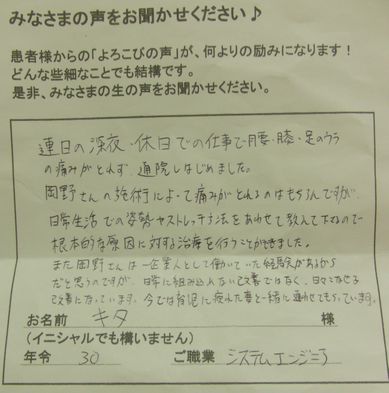 みなさまの声をお聞かせください♪
患者様からの「よろこびの声」が、何よりの励みになります！
どんな些細なことでも結構です。
是非、みなさまの生の声をお聞かせください。
連日の深夜・休日での仕事で腰・膝・足のウラ
の痛みがとれず、通院しはじめました。
岡野さんの施術によって痛みがとれるのはもちろんですが、
日常生活での姿勢やストレッチ方法をあわせて教えて下さるので
根本的な原因に対する治療を行うことができました。
また岡野さんは一企業人として働いていた経験があるから
だと思うのですが、日常に組み込めない改善ではなく、日々こなせる
改善になっています。今では育児に疲れた妻と一緒に通わせてもらっています。
お名前 キタ 様
(イニシャルでも構いません)
年令 30 ご職業 システムエンジニア